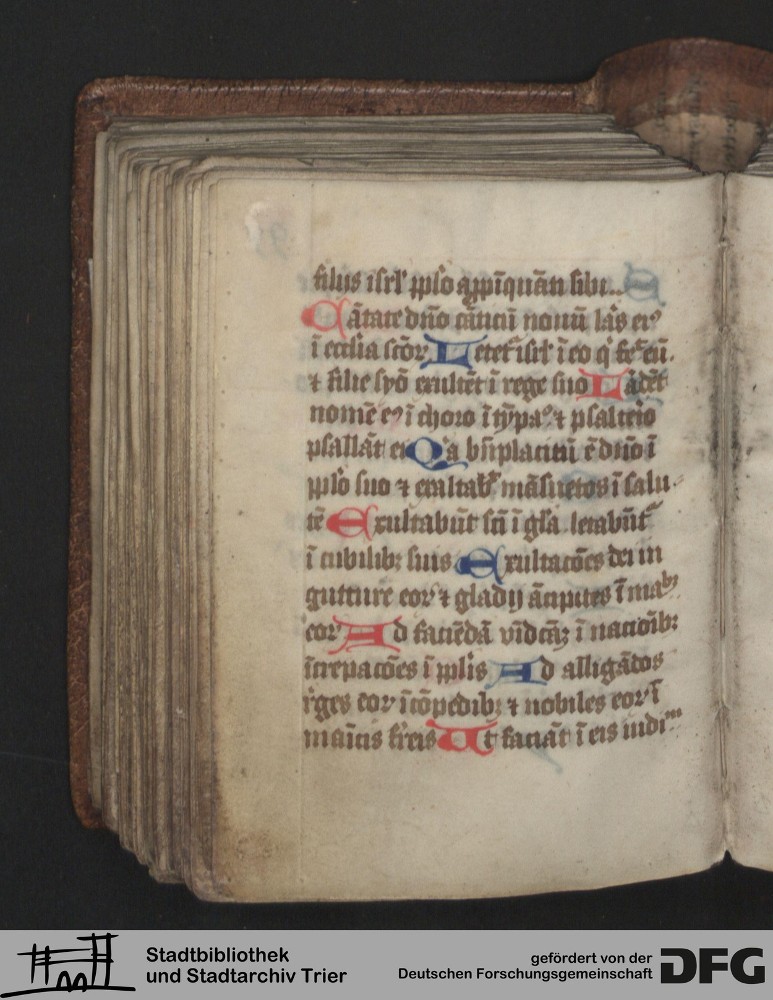 filiis isrl' pplo appīquāti sibi.
Cātate dn̄o cāticū nouū laꝰ eiꝰ
ī ecclīa scōꝝ Letet᷑ isrl' ī eo q̇ fec̄ eū.
⁊ filie syō exultēt ī rege suo Laudēt
nomē eiꝰ ī choro ī tȳpaº ⁊ psalterio
psallāt ei Qͥa bn̄placitū ē dn̄o ī
pplo suo ⁊ exaltabit māsuetos ī salu
tē Exultabūt sc̄i ī gl̄a letabūt᷑
ī cubilibꝫ suis Exultacōes dei in
gutture eoꝝ ⁊ gladij ācipites ī maibꝰ
eoꝝ Ad faciēdā vīdcāꝫ ī nacioībꝫ
īcrepacōes ī pplis Ad alligādos
rͤges eoꝝ ī cōpedibꝫ ⁊ nobiles eoꝝ ī
maīcis ferͥeis Ut faciāt ī eis iudiᵐ
Stadtbibliothek
und Stadtarchiv Trier
gefördert von der
Deutschen Forschungsgemeinschaft
DFG